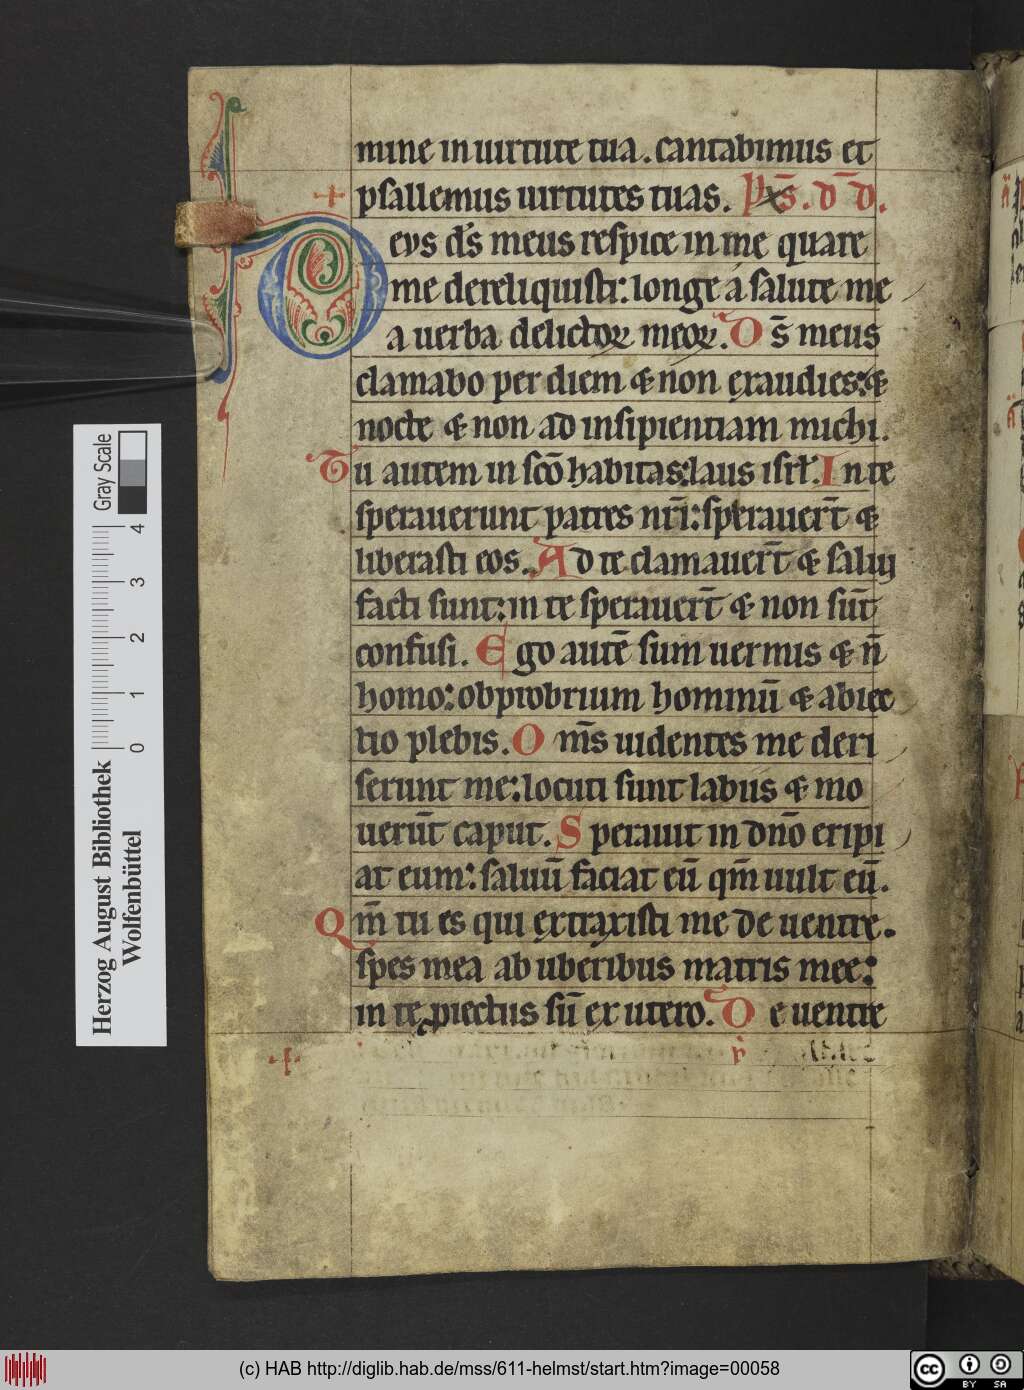 mine in uirtute tua. cantabimus et
psallemus uirtutes tuas. Ps̄. d̄ D.
Deus ds̄ meus respice in me quare
me dereliquisti: longe a salute me
a uerba delictoꝝ meoꝝ. Ds̄ meus
clamabo per diem & non exaudies: &
nocte & non ad insipientiam michi.
Tu autem in sc̄o habitas: laus isrl̄. In te
sperauerunt patres nr̄i: sperauer̄t &
liberasti eos. Ad te clamauer̄t & salui
facti sunt: in te sperauer̄t & non sūt
confusi. Ego autē sum uermis & n̄
homo: obprobrium hominū & abiec
tio plebis. Om̄s uidentes me deri
serunt me: locuti sunt labiis & mo
uerūt caput. Sperauit in dn̄o eripi
at eum: saluū faciat eū qm̄ uult eū.
Qm̄ tu es qui extraxisti me de uentre.
spes mea ab uberibus matris mee:
in te ꝓiectus sū ex utero. De uentre
Herzog August Bibliothek
Wolfenbüttel
Gray Scale
0 1 2 3 4
(c) HAB http://diglib.hab.de/mss/611-helmst/start.htm?image=00058
cc BY SA